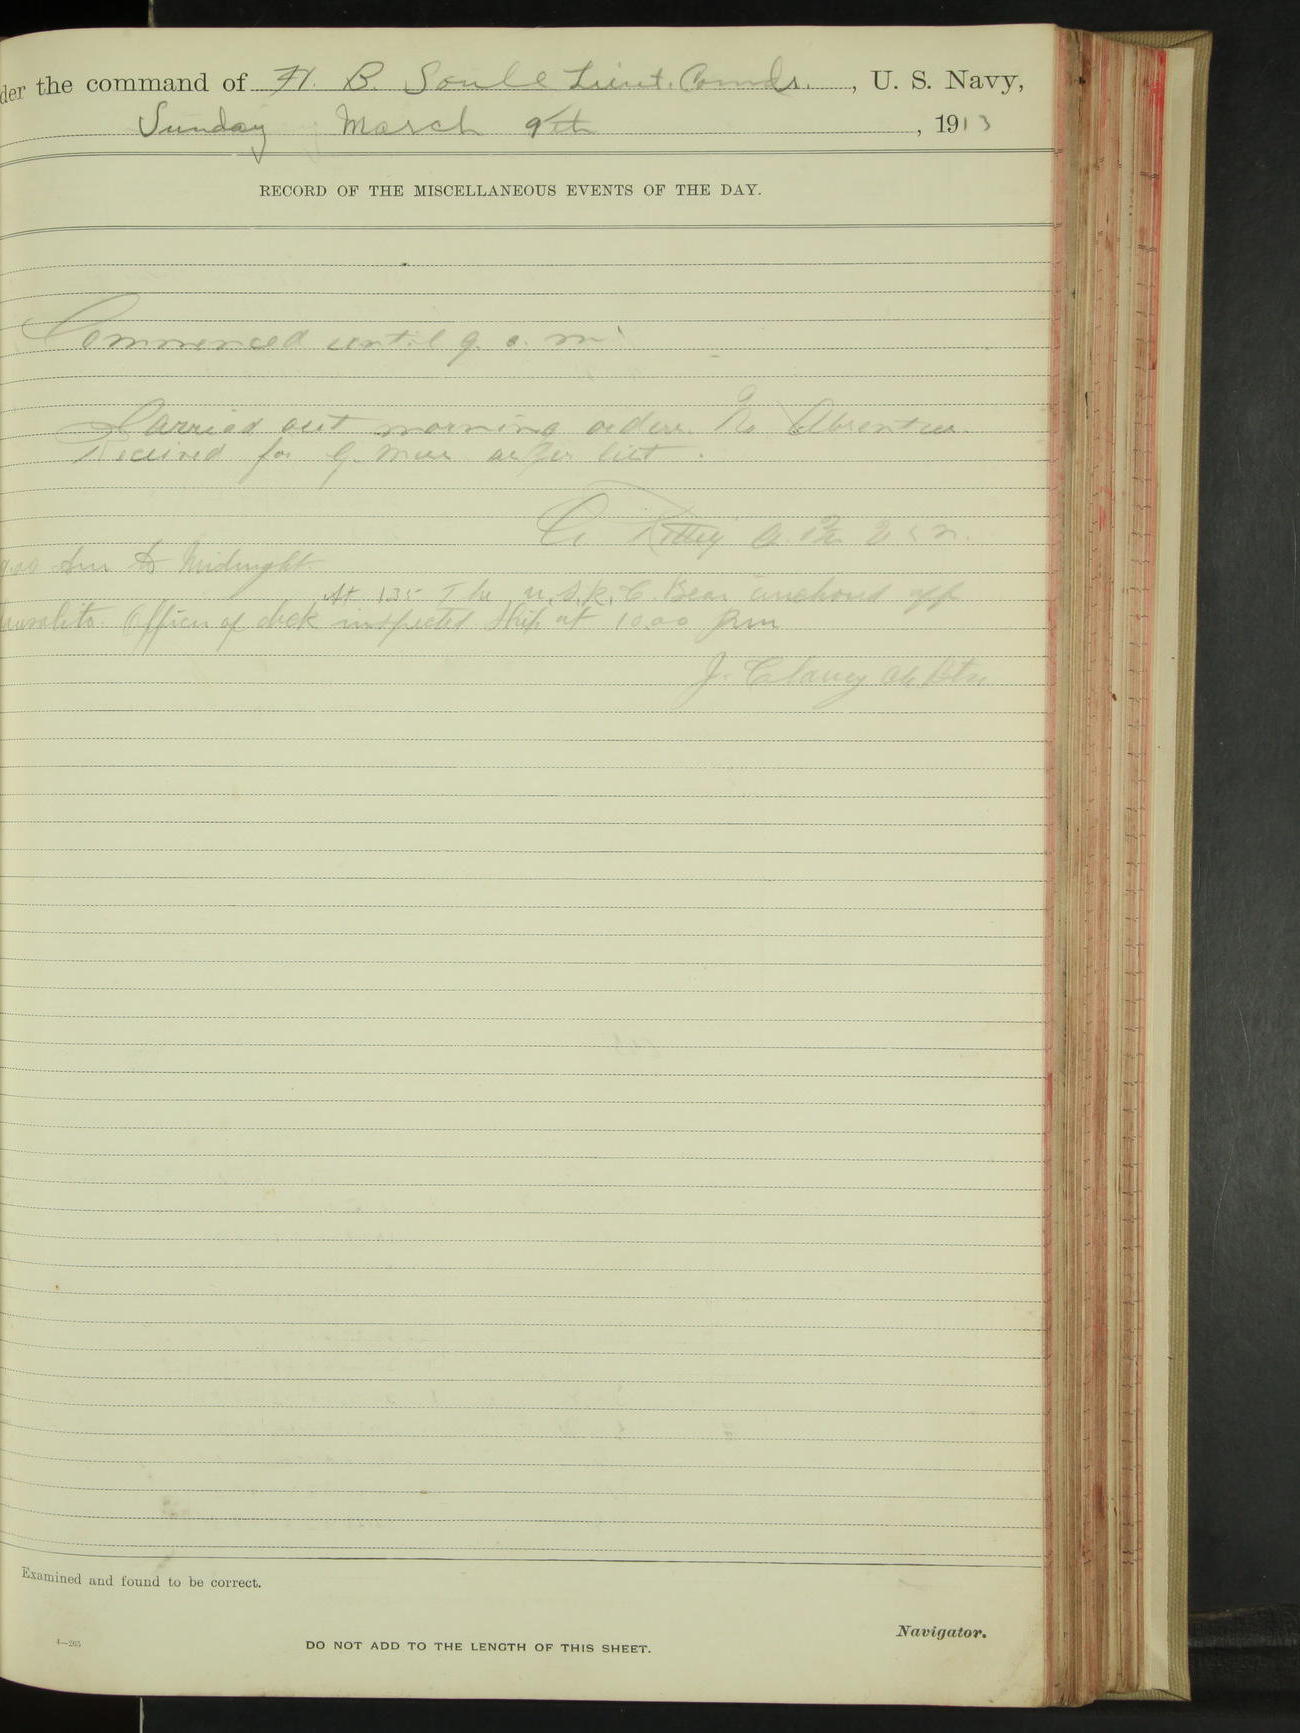 der the command of H. B. Soule Lieut. Comdr., U. S. Navy,
Sunday March 9th, 1913
RECORD OF THE MISCELLANEOUS EVENTS OF THE DAY.
Commenced until 9 a. m.
Carried out morning orders. No Absentees.
Received for G. Mess as per list.
9.00 Am to Midnight.
At 135 The U.S.R.C. Bear anchored off
ausalito. Officer of deck inspected Ship at 10.00 Pm
J. Clancy Ch Btsn
Examined and found to be correct.
Navigator.
4—265
DO NOT ADD TO THE LENGTH OF THIS SHEET.